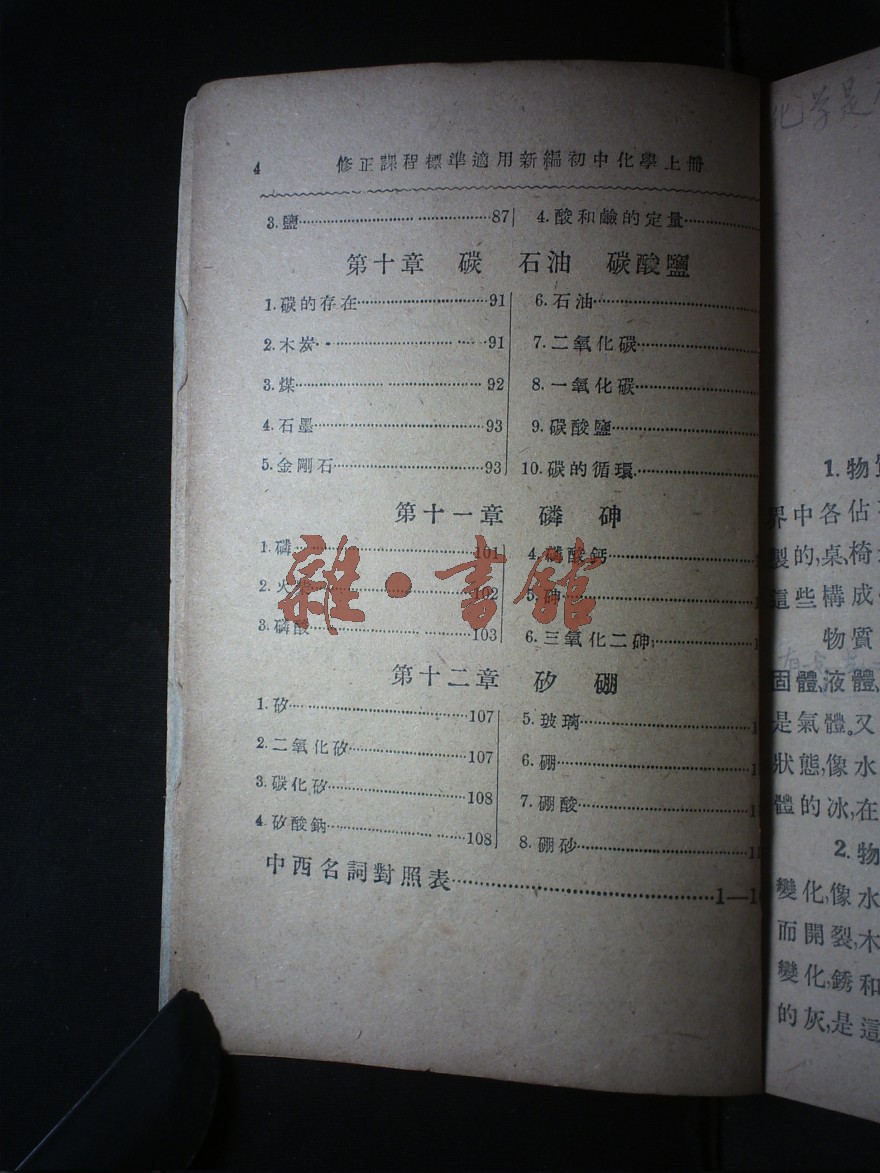 4 修正課程標準適用新編初中化學上冊
3. 鹽……87
4. 酸和鹼的定量……
第十章 碳 石油 碳酸鹽
1. 碳的存在……91
2. 木炭……91
3. 煤……92
4. 石墨……93
5. 金剛石……93
6. 石油……
7. 二氧化碳……
8. 一氧化碳……
9. 碳酸鹽……
10. 碳的循環……
第十一章 磷 砷
1. 磷……101
2. 火柴……102
3. 磷酸……103
4. 磷酸鈣……
5. 砷……
6. 三氧化二砷……
第十二章 矽 硼
1. 矽……107
2. 二氧化矽……107
3. 碳化矽……108
4. 矽酸鈉……108
5. 玻璃……
6. 硼……
7. 硼酸……
8. 硼砂……
中西名詞對照表……1—1
雜·書館
化学是
1. 物質
界中各佔
製的,桌椅
這些構成
物質
固體,液體,
是氣體。又
狀態,像水
體的冰,在
2. 物
變化,像水
而開裂,木
變化,銹和
的灰,是這